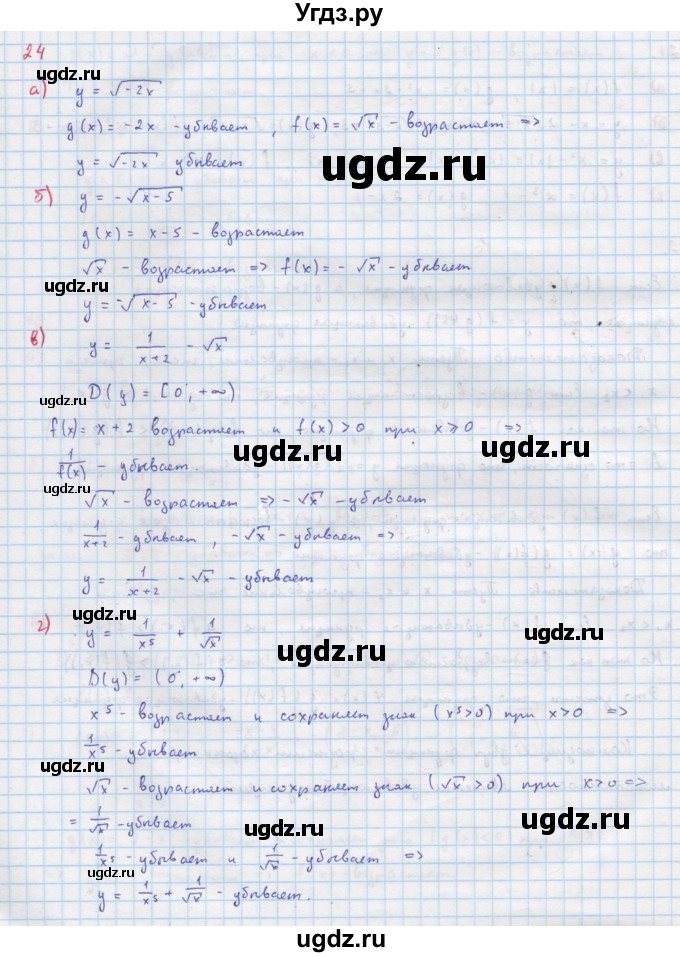 Угдз.ру
24
ugdz.ru
а) y = √-2x
ugdz.ru
g(x) = -2x - убывает, f(x) = √x - возрастает =>
y = √-2x убывает
ugdz.ru
б) y = -√x-5
g(x) = x-5 - возрастает
√x - возрастает => f(x) = -√x - убывает
ugdz.ru
y = -√x-5 - убывает
ugdz.ru
в) y = 1/x+2 - √x
ugdz.ru
D(y) = [0; +∞)
f(x) = x+2 возрастает и f(x) > 0 при x ⩾ 0 =>
ugdz.ru
1/f(x) - убывает.
ugdz.ru
√x - возрастает => -√x - убывает
1/x+2 - убывает, -√x - убывает =>
ugdz.ru
y = 1/x+2 - √x - убывает
ugdz.ru
г) y = 1/x⁵ + 1/√x
ugdz.ru
D(y) = (0; +∞)
x⁵ - возрастает и сохраняет знак (x⁵>0) при x>0 =>
1/x⁵ - убывает
ugdz.ru
√x - возрастает и сохраняет знак (√x >0) при x>0 =>
ugdz.ru
= 1/√x - убывает
ugdz.ru
1/x⁵ - убывает и 1/√x - убывает =>
y = 1/x⁵ + 1/√x - убывает.
ugdz.ru
ugdz.ru